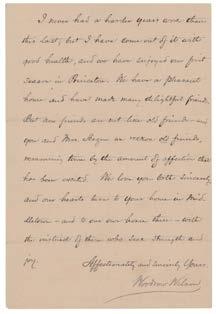 I never had a harder year's work than
this last, but I have come out of it with
good health, and we have enjoyed our first
season in Princeton. We have a pleasant
home and have made many delightful friends.
But new friends are not like old friends – and
you and Mrs. Hazen we reckon old friends,
measuring time by the amount of affection that
has been excited. We love you both sincerely
and our hearts turn to your house in Mid-
dletown – and to our own home there – with
the instinct of those who seek strength and
joy.
Affectionately and sincerely Yours,
Woodrow Wilson